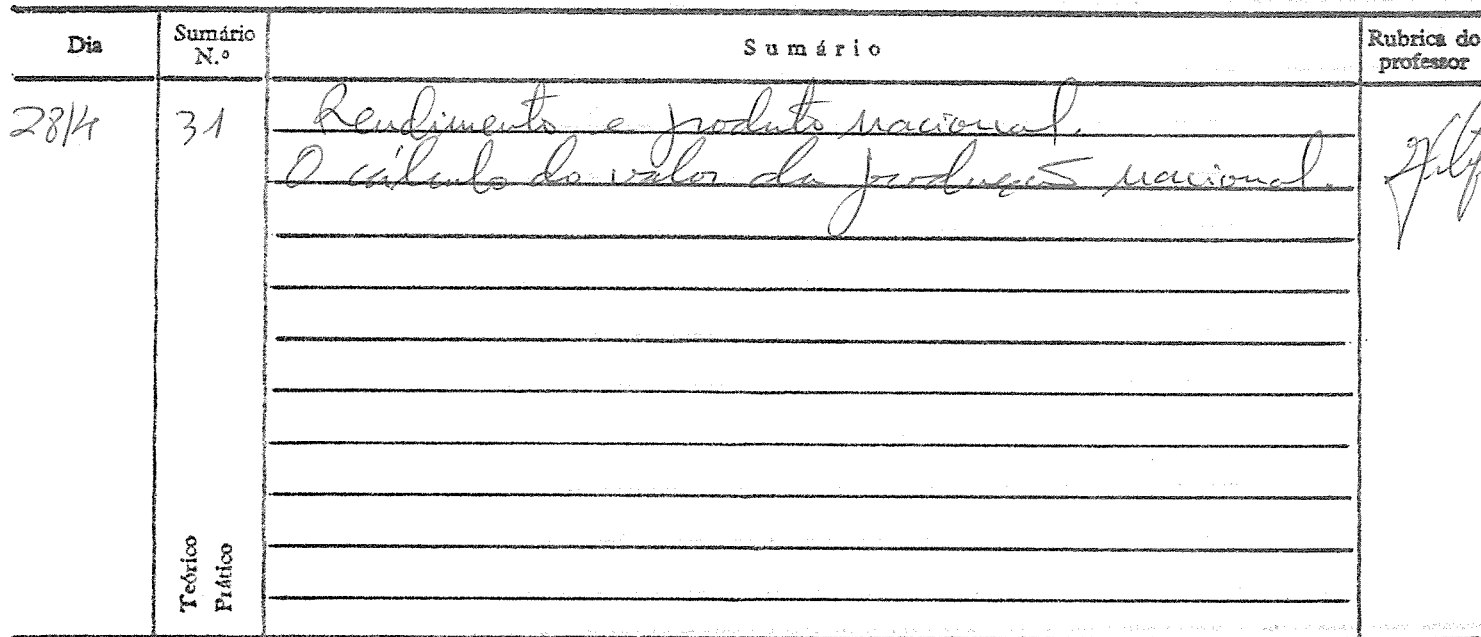 Dia
Sumário N.º
Sumário
Rubrica do professor
28/4
31
Rendimento e produto nacional.
O cálculo do valor da produção nacional.
Teórico
Prático